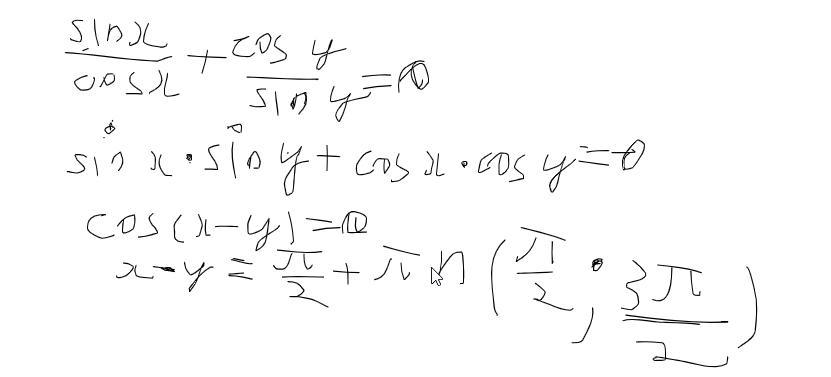 sinx/cosx + cosy/siny = 0
sinx·siny + cosx·cosy = 0
cos(x-y) = 0
x-y = π/2 + πn (π/2; 3π/2)